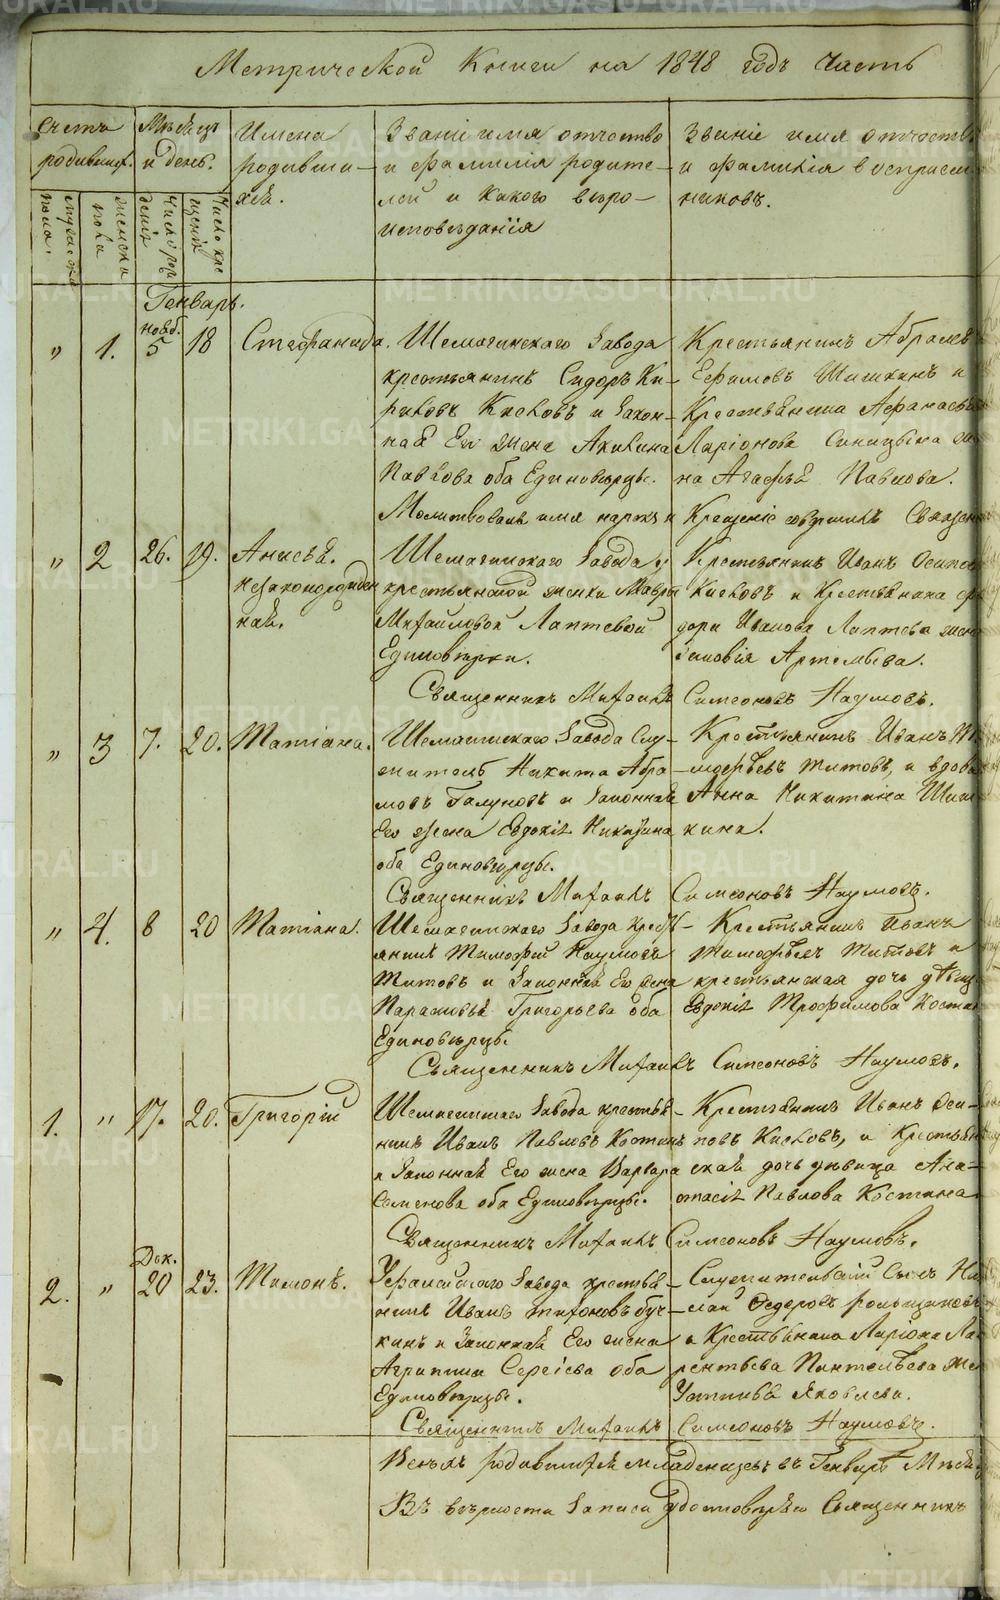 Метрической Книги на 1848 годъ часть
Счетъ родившихъ.
Мѣсяцъ и день.
Имена родивши-
хся.
Званіе имя отчество
и фамилія родите-
лей и какого вѣро-
исповѣданія
Званіе имя отчество
и фамилія воспріем-
никовъ.
мужеска пола.
женска пола
число рож
денія
число кре
щенія
Генварь.
" 1. нояб. 5 18 Стефанида.
Шемагинскаго Завода
крестьянинъ Сидоръ Ки-
риловъ Киселовъ и закон-
ная Его жена Акилина
Павлова оба Единовѣрцы.
Крестьянинъ Абрамъ
Ефимовъ Шишкинъ и
Крестьянина Афанасья
Ларіонова Синицына же
на Агафья Павлова.
Молитвовалъ имя нарекъ и Крещеніе совершилъ Священ
" 2 26. 19. Анисья.
незаконорожден
ная.
Шемагинскаго Завода у
крестьянской женки Мавры
Михайловой Лаптевой
Единовѣрки.
Крестьянинъ Иванъ Осипов
Киселовъ и Крестьянина
дора Иванова Лаптева жен
Зиновія Артемьева.
Священникъ Михаилъ Симеоновъ Наумовъ.
" 3 7. 20. Татіана.
Шемагинскаго Завода Слу-
житель Никита Абра
мовъ Галуновъ и Законная
Его жена Евдокія Никитина
оба Единовѣрцы.
Крестьянинъ Иванъ
Титовъ, и вдова
Анна Никитина Шиш
кина.
Священникъ Михаилъ Симеоновъ Наумовъ.
" 4. 8 20 Татіана.
Шемагинскаго Завода Крестъ
янинъ Тимофей Наумовъ
Титовъ и Законная Его жена
Парасковья Григорьева оба
Единовѣрцы.
Крестьянинъ Иванъ
Тимофѣевъ Титовъ и
крестьянская дочь дѣвиц
Евдокія Трофимова Костин
Священникъ Михаилъ Симеоновъ Наумовъ.
1. " 17. 20. Григорій
Шемагинскаго Завода крестья
нинъ Иванъ Павловъ Костинъ
и Законная Его жена Варвара
Семенова оба Единовѣрцы.
Крестьянинъ Иванъ Оси-
повъ Киселовъ, и Крестьян
ская дочь дѣвица Ана-
стасія Павлова Костина
Священникъ Михаилъ Симеоновъ Наумовъ.
2. " Дек. 20 23. Тимонъ.
Уфалейскаго Завода крестья
нинъ Иванъ Тихоновъ Буч-
кинъ и Законная Его жена
Агрипина Сергіева оба
Единовѣрцы.
Служительскій Сынъ Ни
Федоровъ
и Крестьянина Ларіона Ла
рентьева Пантелѣева же
Устинья Яковлева.
Священникъ Михаилъ Симеоновъ Наумовъ.
Всѣхъ родившихся младенцевъ въ Генварѣ Мѣся
Въ вѣрности Записи удостовѣряю Священникъ
METRIKI.GASO-URAL.RU